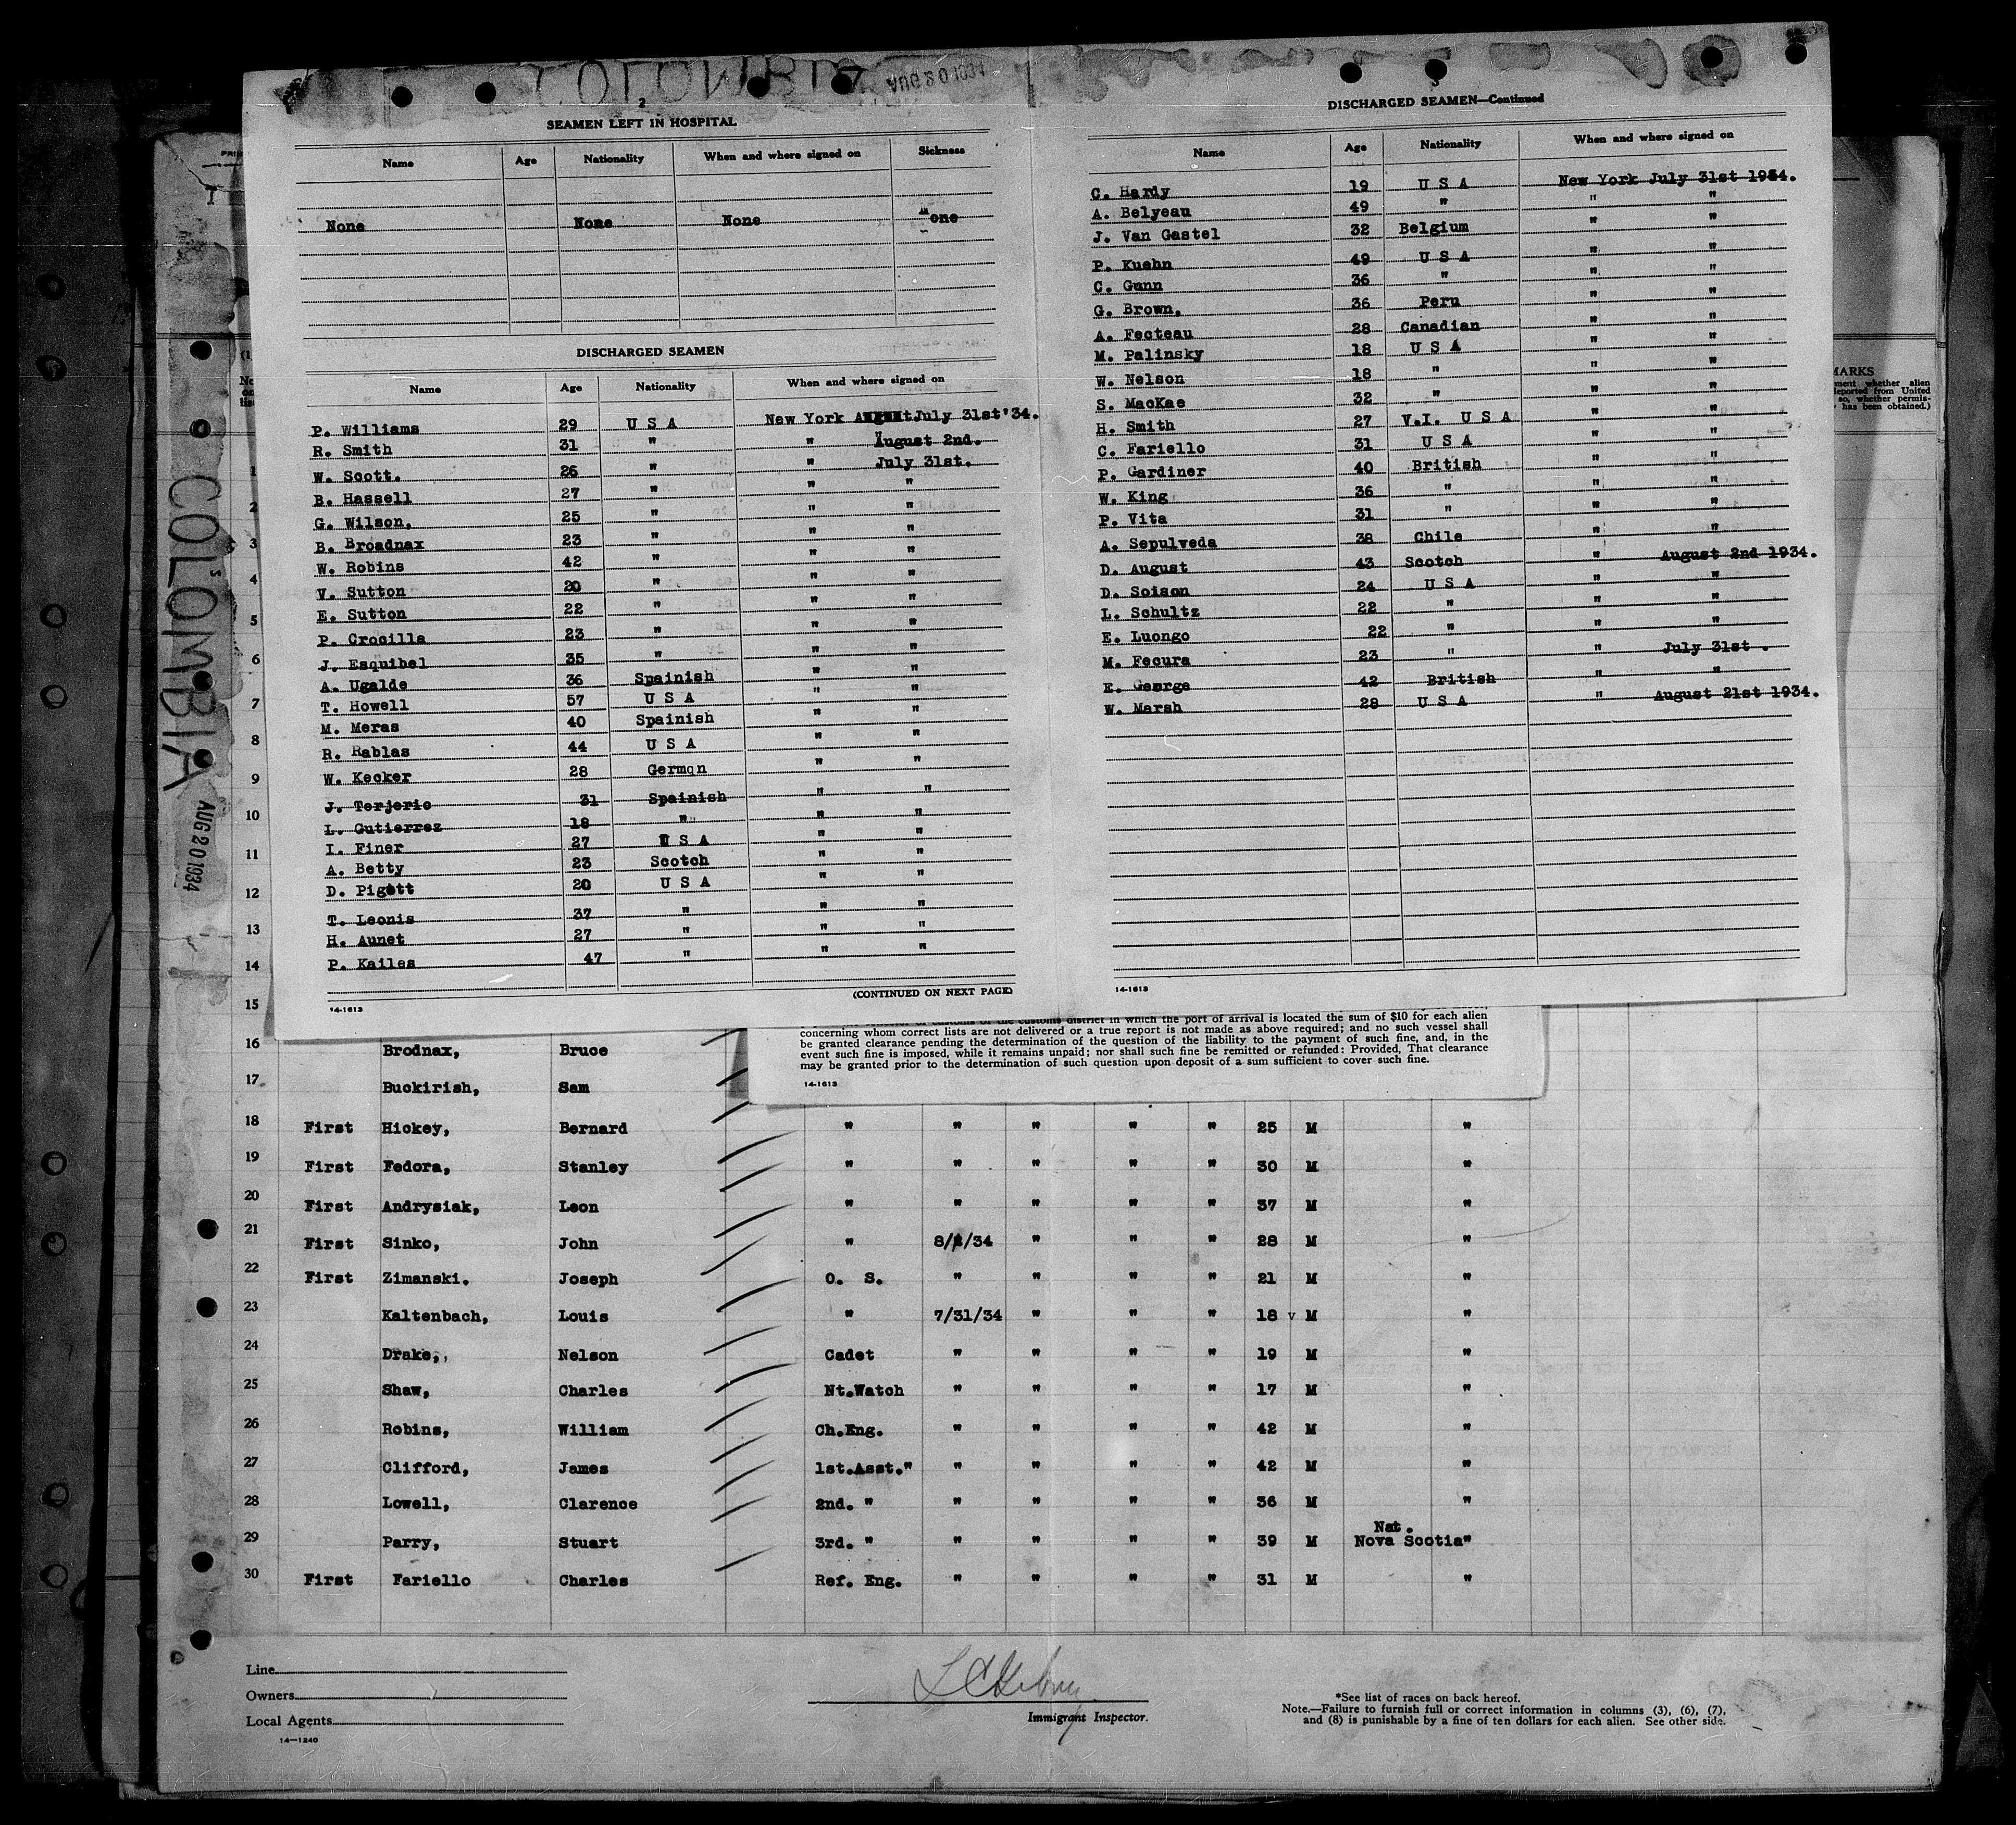 COLOMBIA AUG 20 1934
2
SEAMEN LEFT IN HOSPITAL
Name Age Nationality When and where signed on Sickness
None None None None
DISCHARGED SEAMEN
Name Age Nationality When and where signed on
P. Williams 29 U S A New York July 31st'34.
R. Smith 31 " " August 2nd.
W. Scott. 26 " " July 31st.
B. Hassell 27 " " "
G. Wilson, 25 " " "
B. Broadnax 23 " " "
W. Robins 42 " " "
V. Sutton 20 " " "
E. Sutton 22 " " "
P. Crocilla 23 " " "
J. Esquibel 35 " " "
A. Ugalde 36 Spainish " "
T. Howell 57 U S A " "
M. Meras 40 Spainish " "
R. Rablas 44 U S A " "
W. Kecker 28 German " "
J. Terjerio 31 Spainish " "
L. Gutierrez 18 " " "
I. Finer 27 U S A " "
A. Betty 23 Scotch " "
D. Pigott 20 U S A " "
T. Leonis 37 " " "
H. Aunet 27 " " "
P. Kailes 47 " " "
(CONTINUED ON NEXT PAGE)
14-1613
3
DISCHARGED SEAMEN—Continued
Name Age Nationality When and where signed on
C. Hardy 19 U S A New York July 31st 1934.
A. Belyeau 49 " " "
J. Van Gastel 32 Belgium " "
P. Kuehn 49 U S A " "
C. Gunn 36 " " "
G. Brown, 36 Peru " "
A. Fecteau 28 Canadian " "
M. Palinsky 18 U S A " "
W. Nelson 18 " " "
S. MacKae 32 " " "
H. Smith 27 V.I. U S A " "
C. Fariello 31 U S A " "
P. Gardiner 40 British " "
W. King 36 " " "
P. Vita 31 " " "
A. Sepulveda 38 Chile " "
D. August 43 Scotch " August 2nd 1934.
D. Soison 24 U S A " "
L. Schultz 22 " " "
E. Luongo 22 " " "
M. Fecura 23 " " July 31st .
E. George 42 British " "
W. Marsh 28 U S A " August 21st 1934.
14-1613
MARKS
ment whether alien
deported from United
so, whether permis-
has been obtained.)
COLOMBIA AUG 20 1934
1
2
3
4
5
6
7
8
9
10
11
12
13
14
15
customs district in which the port of arrival is located the sum of $10 for each alien
concerning whom correct lists are not delivered or a true report is not made as above required; and no such vessel shall
be granted clearance pending the determination of the question of the liability to the payment of such fine, and, in the
event such fine is imposed, while it remains unpaid; nor shall such fine be remitted or refunded: Provided, That clearance
may be granted prior to the determination of such question upon deposit of a sum sufficient to cover such fine.
14-1613
16 Brodnax, Bruce
17 Buckirish, Sam
18 First Hickey, Bernard " " " " " 25 M "
19 First Fedora, Stanley " " " " " 30 M "
20 First Andrysiak, Leon " " " " " 37 M "
21 First Sinko, John " 8/2/34 " " " 28 M "
22 First Zimanski. Joseph O. S. " " " " 21 M "
23 Kaltenbach, Louis " 7/31/34 " " " 18 v M "
24 Drake,, Nelson Cadet " " " " 19 M "
25 Shaw, Charles Nt.Watch " " " " 17 M "
26 Robins, William Ch.Eng. " " " " 42 M "
27 Clifford, James 1st.Asst." " " " " 42 M "
28 Lowell, Clarence 2nd. " " " " " 36 M "
29 Parry, Stuart 3rd. " " " " " 39 M Nat. Nova Scotia"
30 First Fariello Charles Ref. Eng. " " " " 31 M "
Line
Owners
Local Agents
14—1240
Immigrant Inspector.
*See list of races on back hereof.
Note.—Failure to furnish full or correct information in columns (3), (6), (7),
and (8) is punishable by a fine of ten dollars for each alien. See other side.